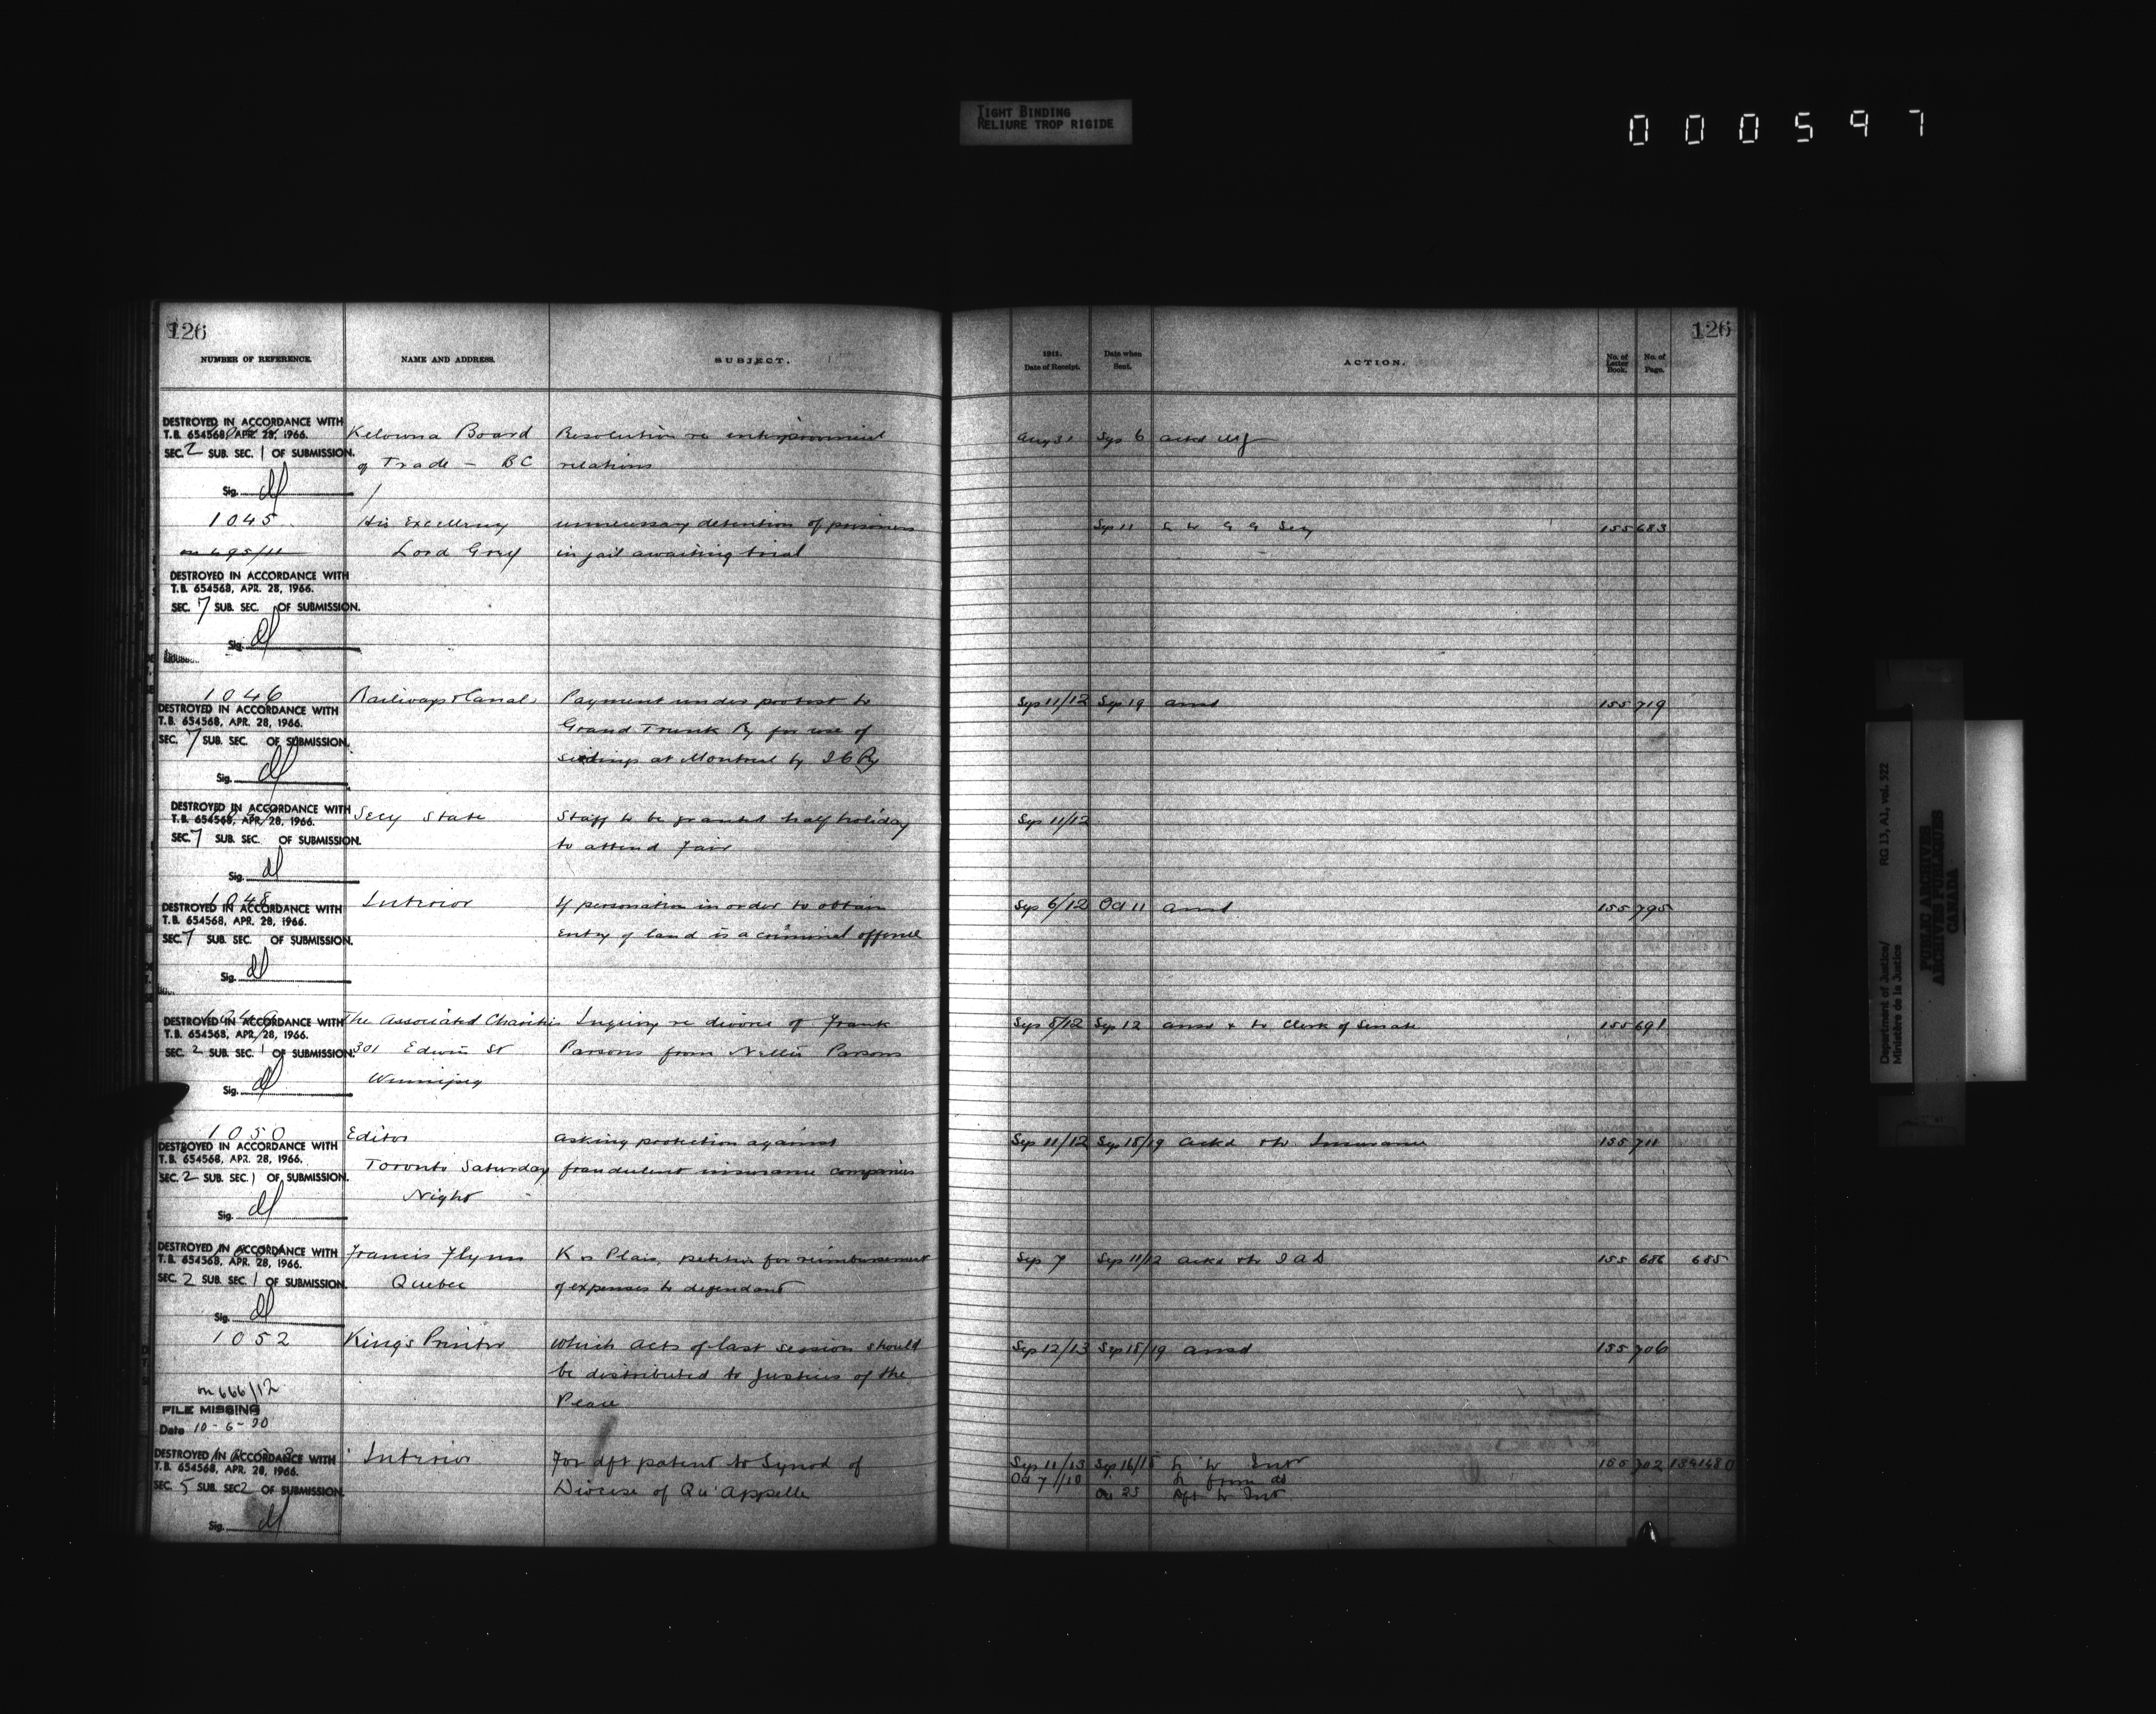 TIGHT BINDING
RELIURE TROP RIGIDE
000597
126
NUMBER OF REFERENCE.
NAME AND ADDRESS.
SUBJECT.
DESTROYED IN ACCORDANCE WITH
T.B. 654568, APR. 28, 1966.
SEC. 2 SUB. SEC. 1 OF SUBMISSION.
Sig.
Kelowna Board
of Trade - BC
Resolution re interprovincial
relations
1045
on 695/11
His Excellency
Lord Grey
unnecessary detention of prisoners
in jail awaiting trial
DESTROYED IN ACCORDANCE WITH
T.B. 654568, APR. 28, 1966.
SEC. 7 SUB. SEC. OF SUBMISSION.
Sig.
1046
DESTROYED IN ACCORDANCE WITH
T.B. 654568, APR. 28, 1966.
SEC. 7 SUB. SEC. OF SUBMISSION.
Sig.
Railways & Canals
Payment under protest to
Grand Trunk Ry for use of
sidings at Montreal by I C Ry
DESTROYED IN ACCORDANCE WITH
T.B. 654568, APR. 28, 1966.
SEC. 7 SUB. SEC. OF SUBMISSION.
Sig.
Secy State
Staff to be granted half holiday
to attend fair
1048
DESTROYED IN ACCORDANCE WITH
T.B. 654568, APR. 28, 1966.
SEC. 7 SUB. SEC. OF SUBMISSION.
Sig.
Interior
If personation in order to obtain
entry of land is a criminal offence
1049
DESTROYED IN ACCORDANCE WITH
T.B. 654568, APR. 28, 1966.
SEC. 2 SUB. SEC. 1 OF SUBMISSION.
Sig.
The Associated Charities
301 Edwin St
Winnipeg
Inquiry re divorce of Frank
Parsons from Nellie Parsons
1050
DESTROYED IN ACCORDANCE WITH
T.B. 654568, APR. 28, 1966.
SEC. 2 SUB. SEC. 1 OF SUBMISSION.
Sig.
Editor
Toronto Saturday
Night
asking protection against
fraudulent insurance companies
DESTROYED IN ACCORDANCE WITH
T.B. 654568, APR. 28, 1966.
SEC. 2 SUB. SEC. 1 OF SUBMISSION.
Sig.
Francis Flynn
Quebec
K vs Plain, petition for reimbursement
of expenses to defendant
1052
on 666/12
FILE MISSING
Date 10-6-20
King's Printer
Which acts of last session should
be distributed to Justices of the
Peace
1053
DESTROYED IN ACCORDANCE WITH
T.B. 654568, APR. 28, 1966.
SEC. 5 SUB. SEC. 2 OF SUBMISSION.
Sig.
Interior
For dft patent to Synod of
Diocese of Qu'Appelle
126
1911.
Date of Receipt.
Date when
Sent.
ACTION.
No. of
Letter
Book.
No. of
Page.
Aug 31 Sep 6 ackd
Sep 11 L to G G Secy 155 683
Sep 11/12 Sep 19 ansd 155 719
Sep 11/12
Sep 6/12 Oct 11 ansd 155 795
Sep 8/12 Sep 12 ansd & to Clerk of Senate 155 691
Sep 11/12 Sep 18/19 ackd & to Insurance 155 711
Sep 7 Sep 11/12 ackd & to I A D 155 686 685
Sep 12/13 Sep 18/19 ansd 155 706
Sep 11/13 Sep 16/18 L to Intr 155 702
Oct 7/10 L from do
Oct 25 Dft to Intr.
Department of Justice/
Ministère de la Justice
RG 13, A1, vol. 522
PUBLIC ARCHIVES
ARCHIVES PUBLIQUES
CANADA